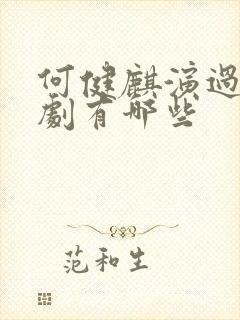 何健麒演過
劇有哪些
范和生